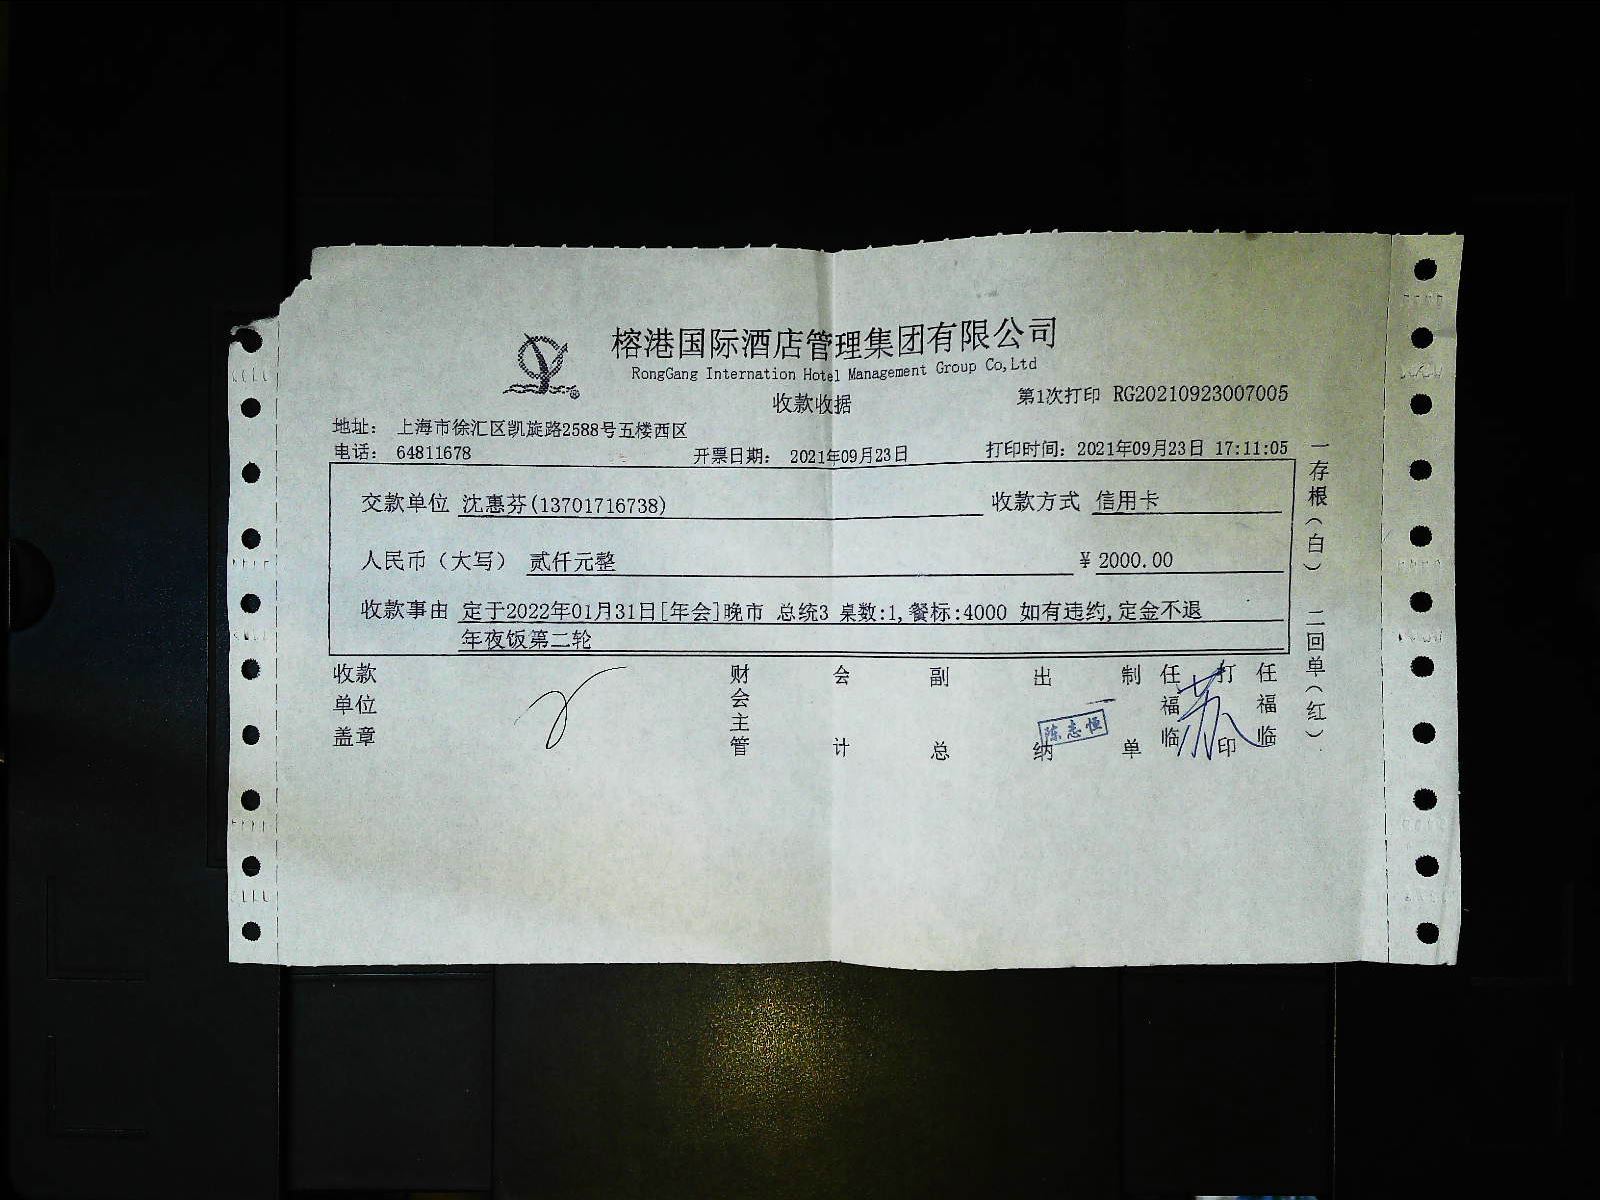 榕港国际酒店管理集团有限公司
RongGang Internation Hotel Management Group Co,Ltd
收款收据
第1次打印 RG20210923007005
地址： 上海市徐汇区凯旋路2588号五楼西区
电话： 64811678
开票日期： 2021年09月23日
打印时间：2021年09月23日 17:11:05
交款单位 沈惠芬(13701716738)
收款方式 信用卡
人民币（大写） 贰仟元整
￥2000.00
收款事由 定于2022年01月31日[年会]晚市 总统3 桌数:1,餐标:4000 如有违约,定金不退
年夜饭第二轮
收款单位盖章
财会主管
会计
副总
出纳
陈志恒
制单
任福临
打印
任福临
苏
一存根（白） 二回单（红）